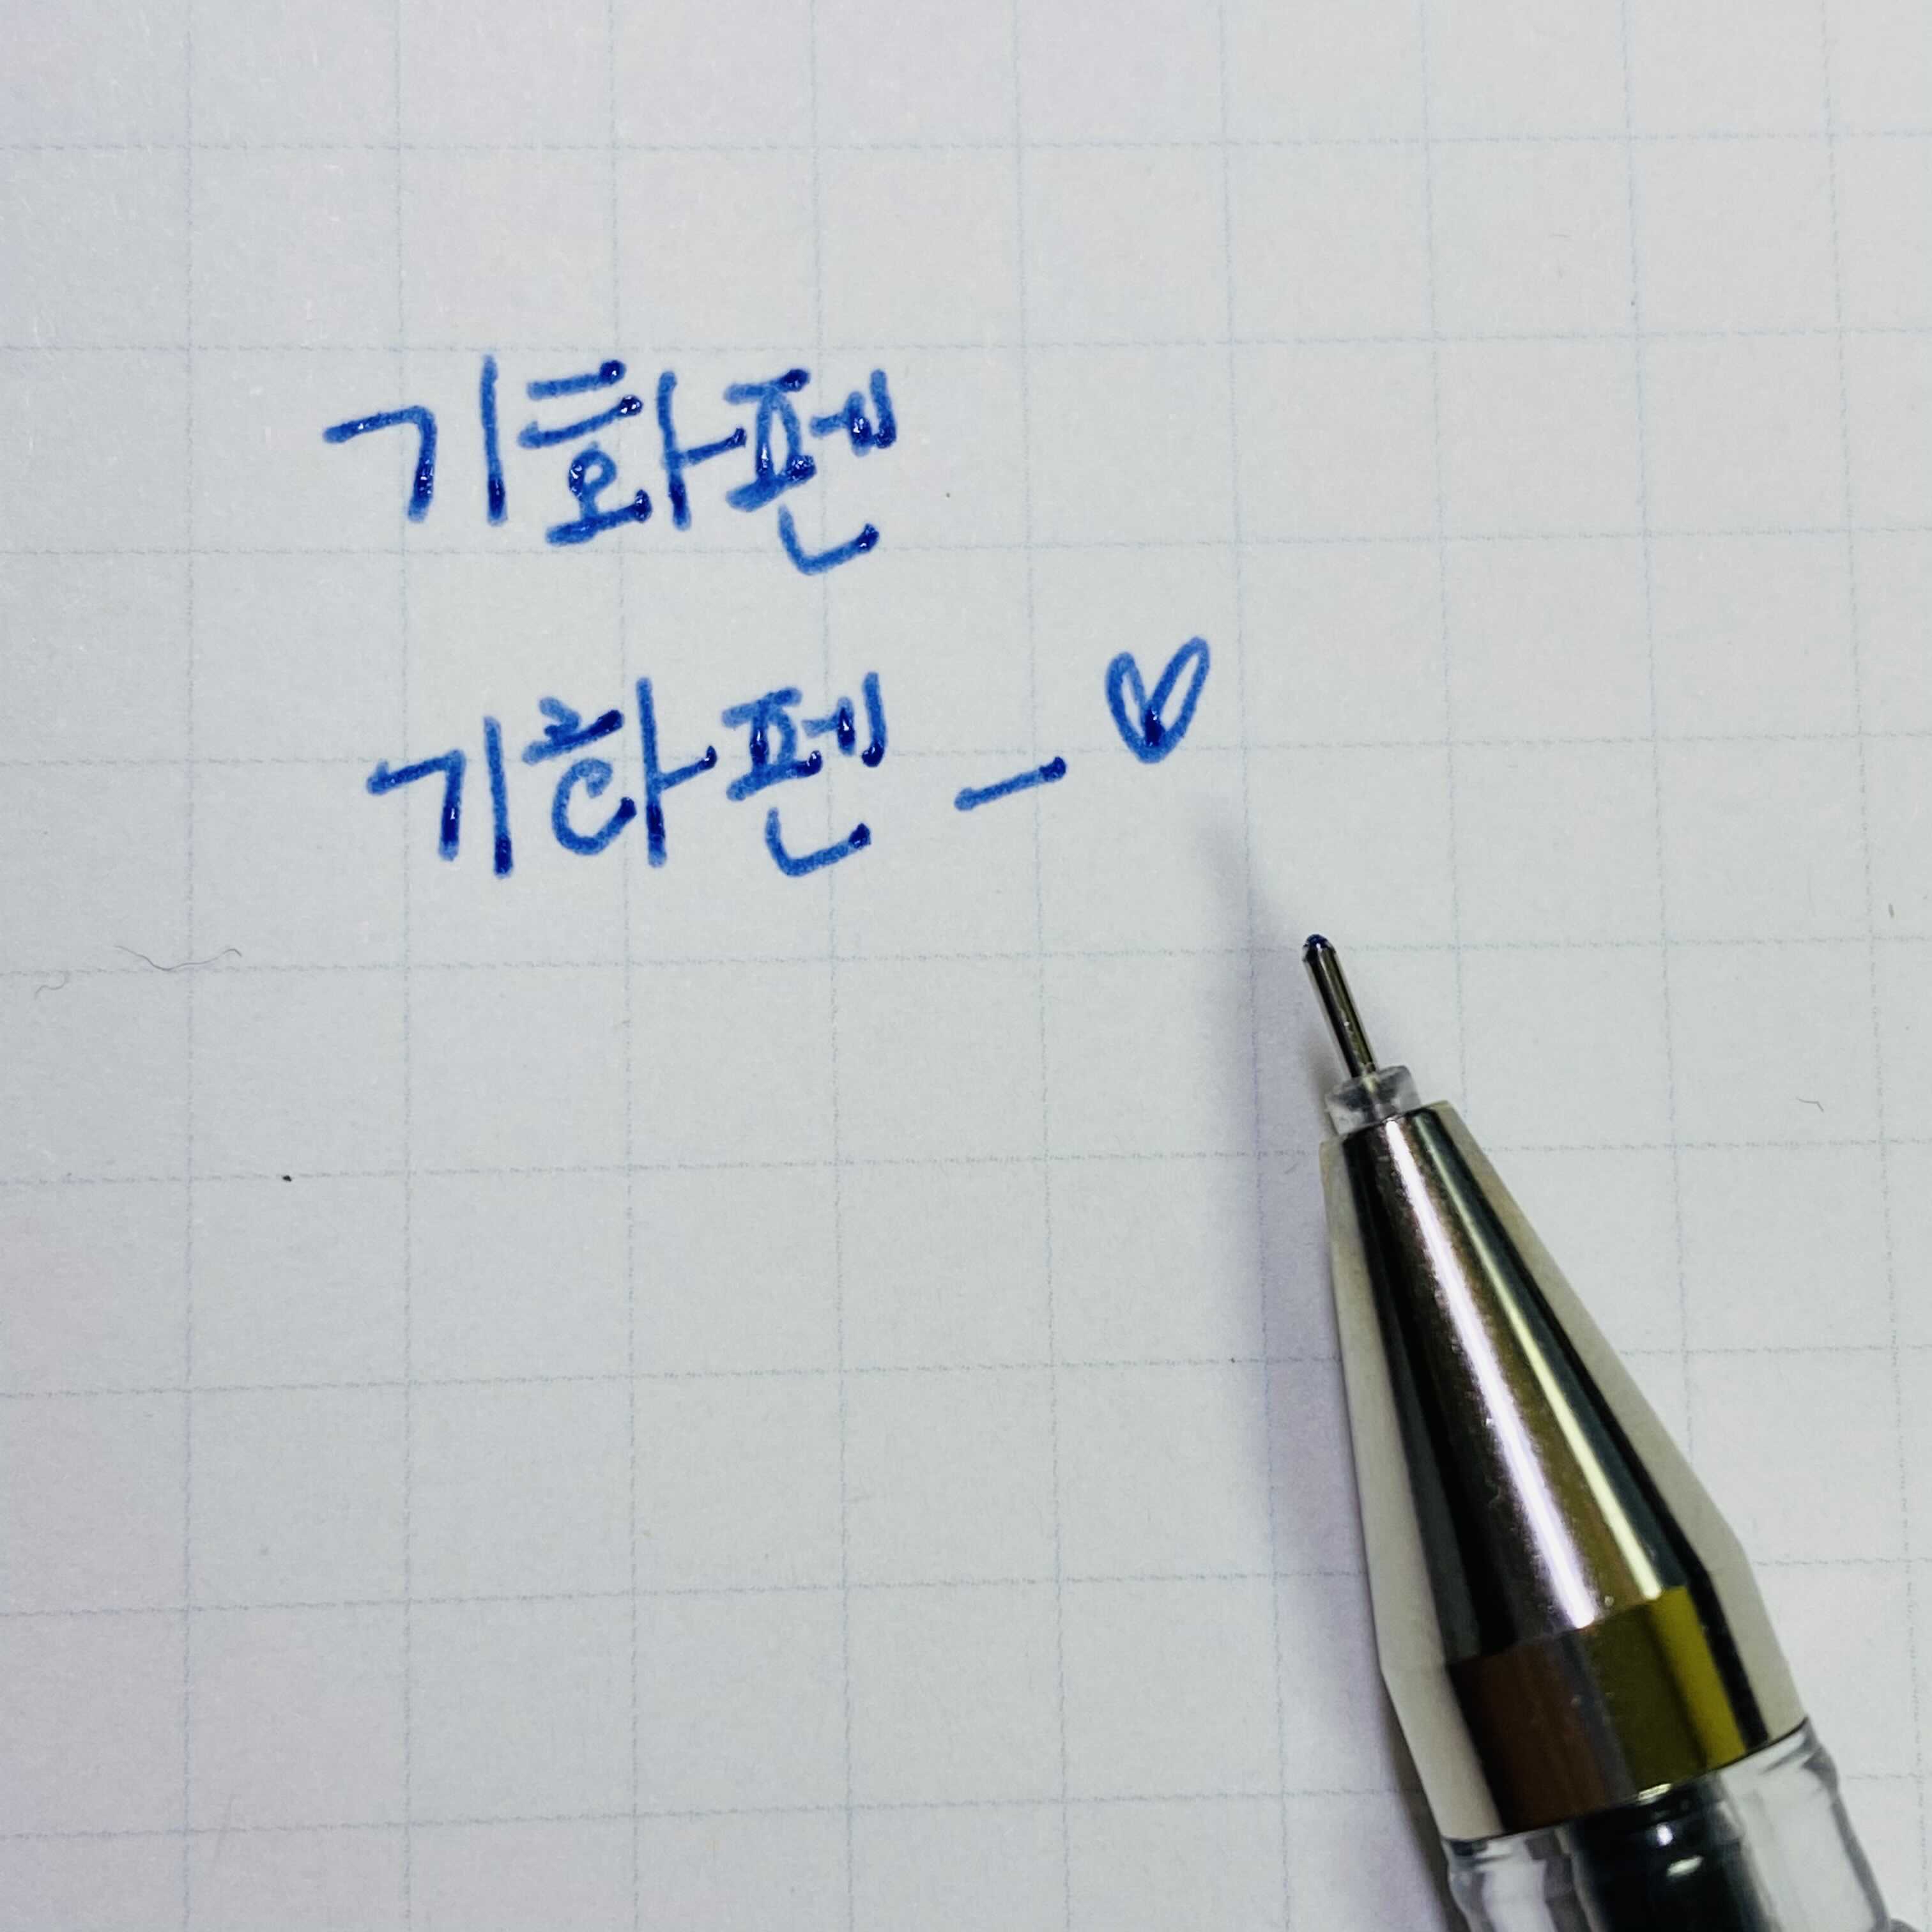 기화펜
기하펜 _ ♡